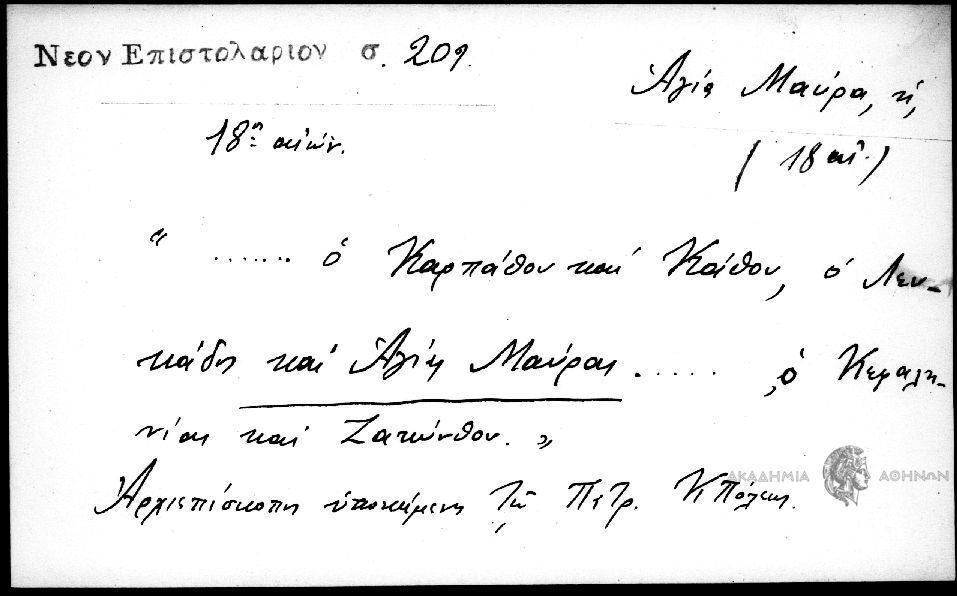 Νεον Επιστολαριον σ. 209.
Ἁγία Μαύρα, ἡ,
18ης αἰών.
( 18 αἰ. )
" ...... ὁ Καρπάθου καὶ Κάθου, ὁ Λευ-
κάδος καὶ Ἁγίας Μαύρας ..... , ὁ Κεφαλη-
νίας καὶ Ζακύνθου. "
ΑΚΑΔΗΜΙΑ ΑΘΗΝΩΝ
Ἀρχιεπίσκοποι ὑποκείμενοι τῷ Πατρ. Κπόλεως.